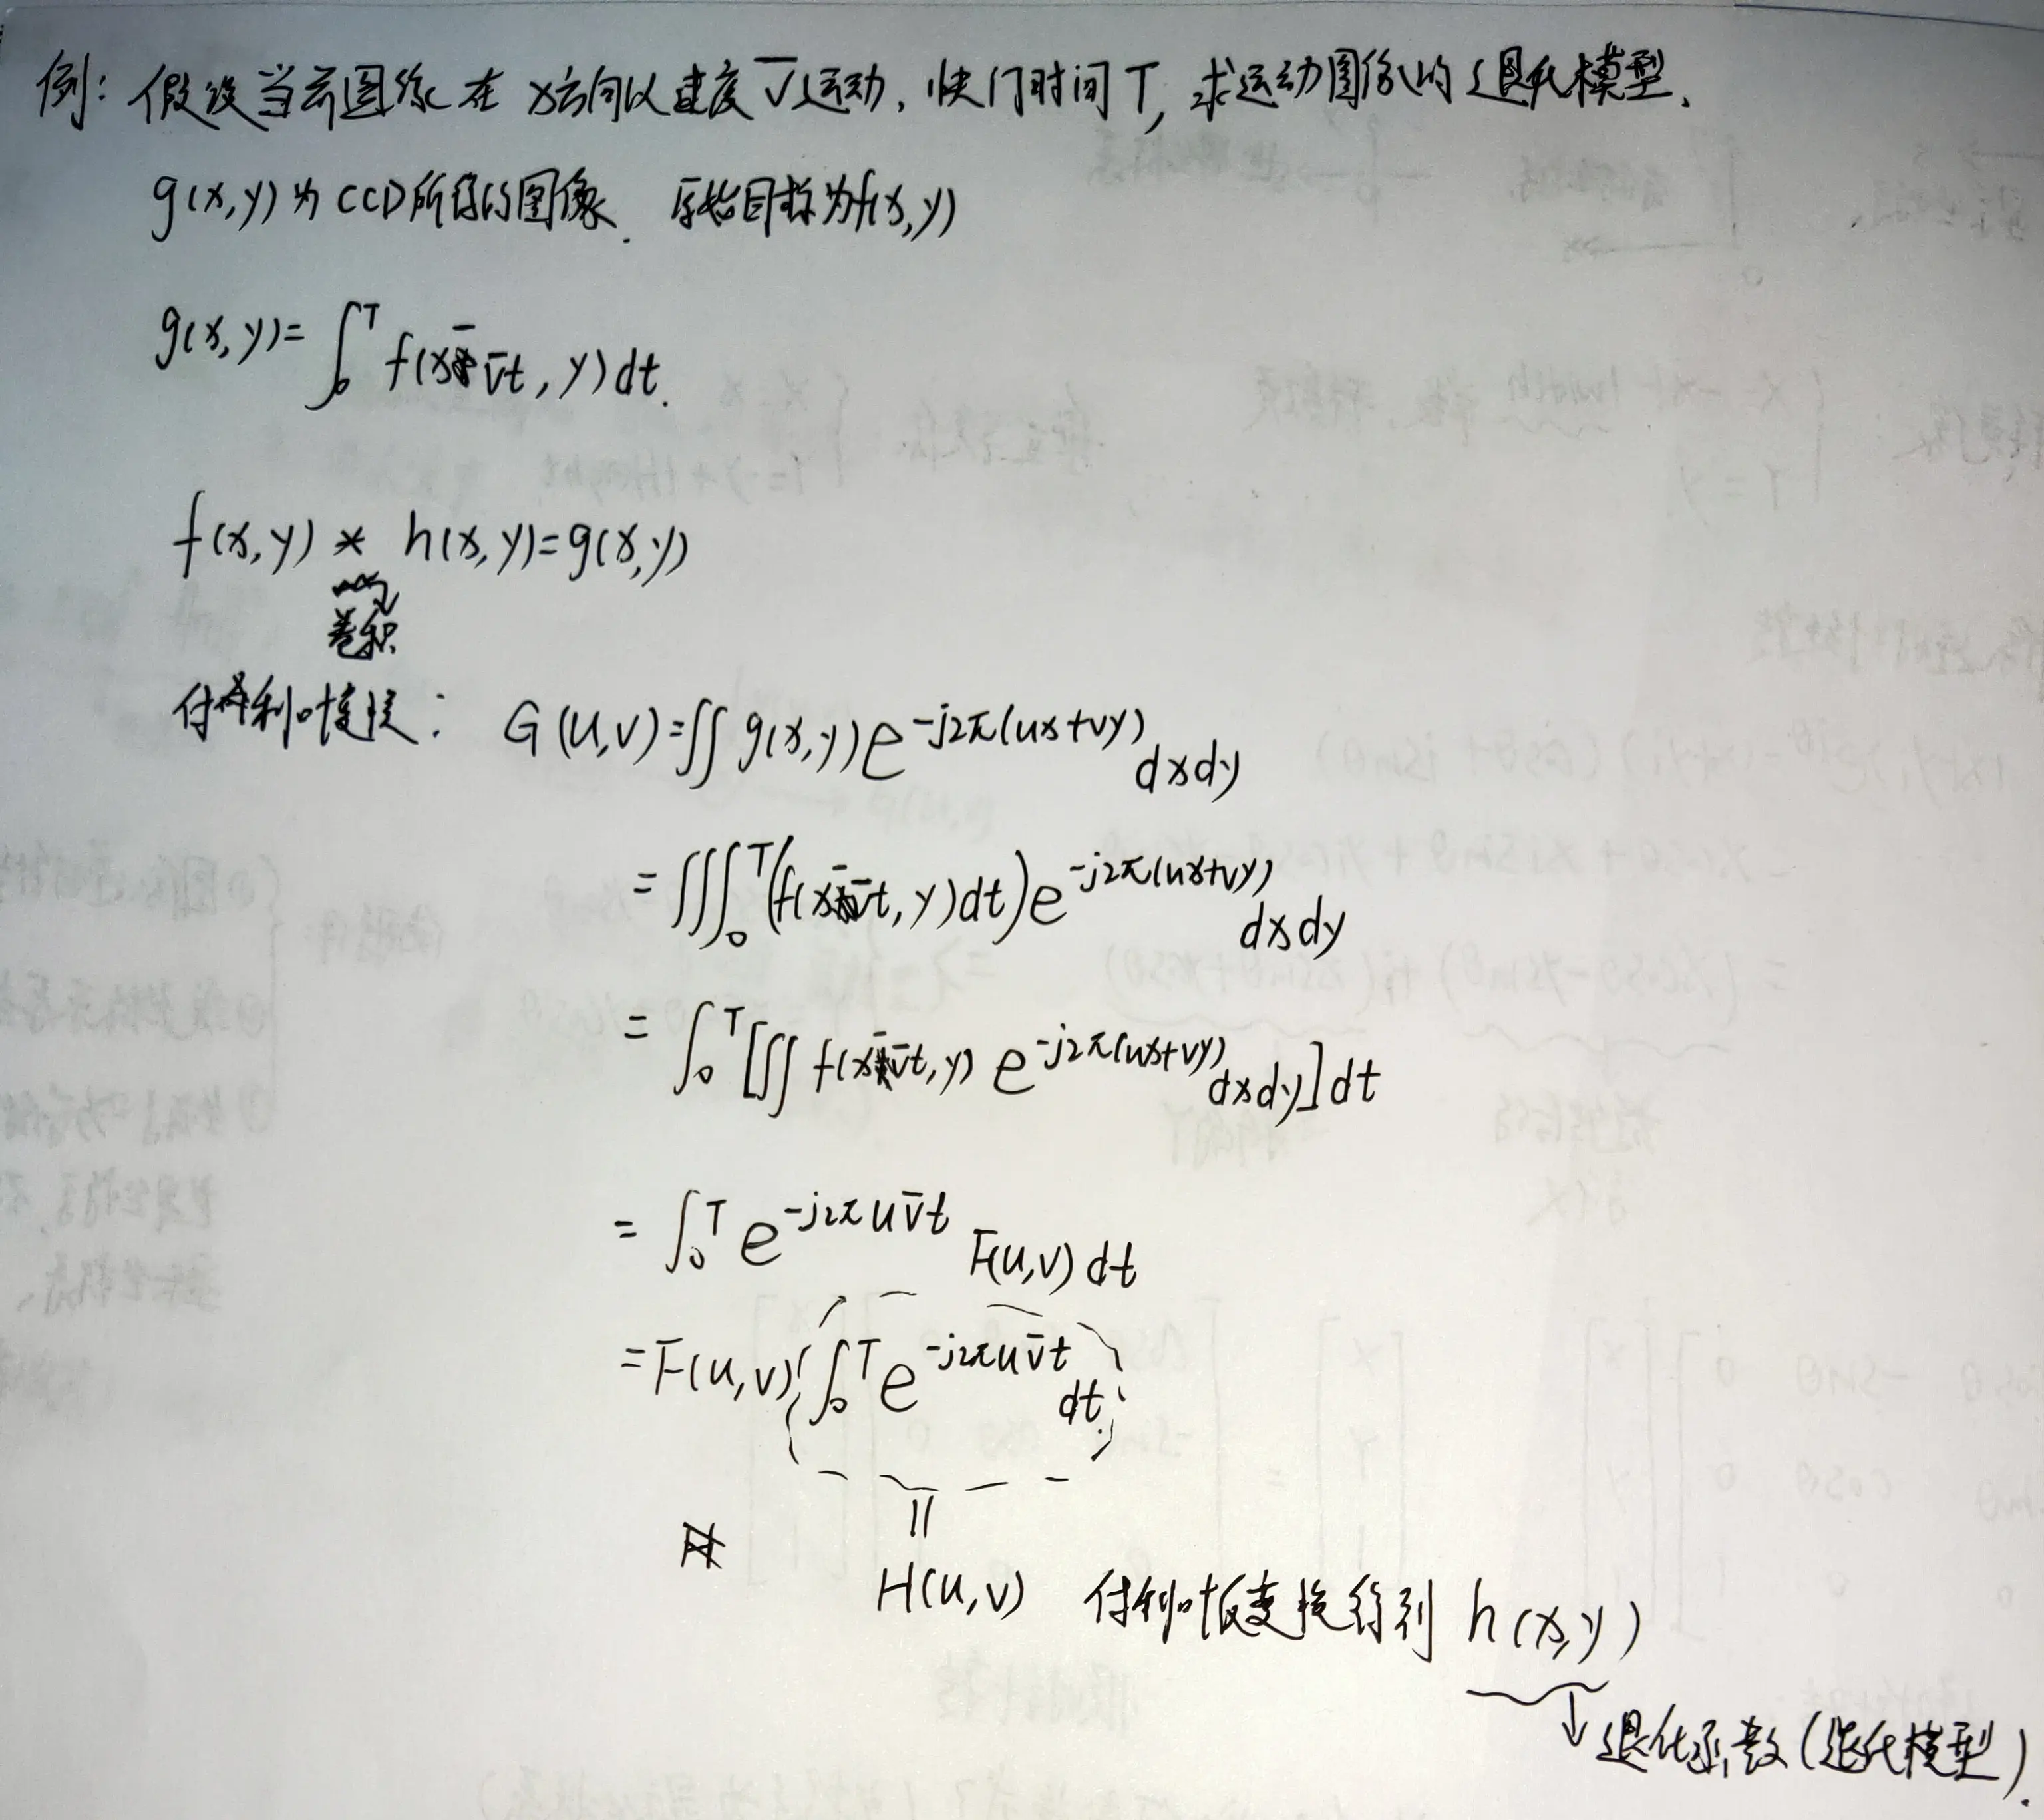 例: 假设当前图像在x方向以速度V̄运动, 快门时间T, 求运动图像的退化模型.
g(x,y)为CCD所得的图像. 原始目标为f(x,y)
g(x,y)=∫₀ᵀ f(x-v̄t, y)dt.
f(x,y) * h(x,y)=g(x,y)
卷积
付利叶变换: G(u,v)=∬ g(x,y)e^{-j2π(ux+vy)}dxdy
=∬∫₀ᵀ(f(x-v̄t, y)dt)e^{-j2π(ux+vy)}dxdy
=∫₀ᵀ[∬ f(x-v̄t,y) e^{-j2π(ux+vy)}dxdy]dt
=∫₀ᵀ e^{-j2πuv̄t} F(u,v)dt
=F(u,v)∫₀ᵀ e^{-j2πuv̄t}dt
||
H(u,v) 付利叶反变换得到 h(x,y)
↓退化函数(退化模型).